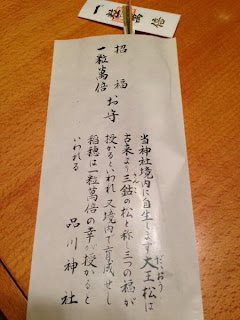 一粒萬倍
招福
一粒萬倍 お守
当神社境内に自生します大王松は
だいおう
古来より三鈷の松と称し三つの福が
さんこ
授かるといわれ又境内で育成せし
稲穂は一粒萬倍の幸が授かると
いわれる
品川神社